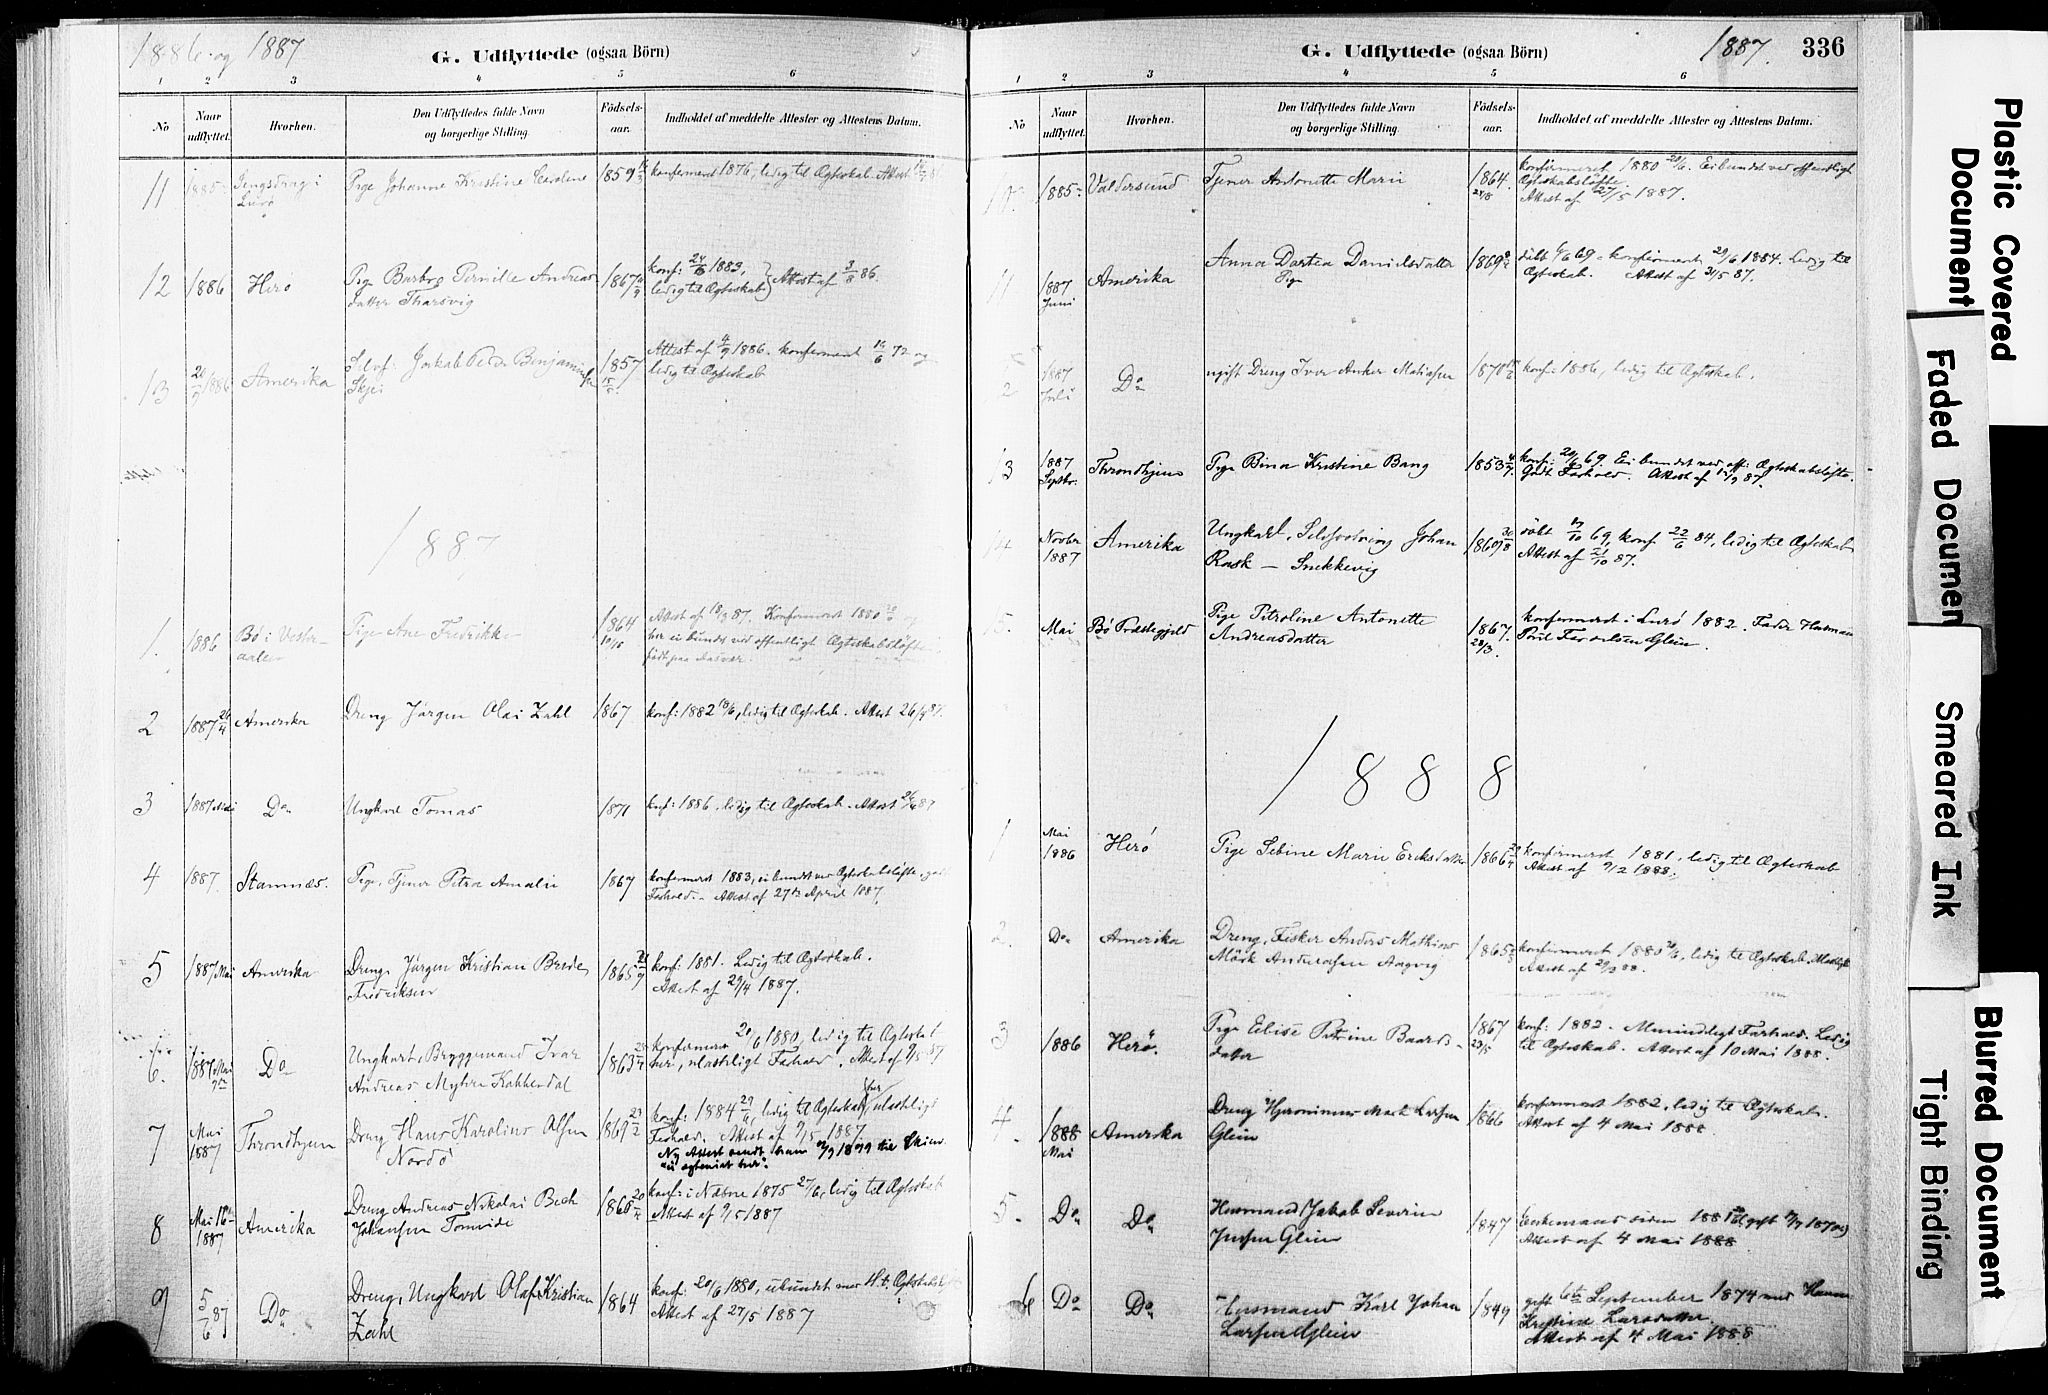 1886 og 1887
G. Udflyttede (ogsaa Börn)
1 2 3 4 5 6
No
Naar udflyttet.
Hvorhen.
Den Udflyttedes fulde Navn og borgerlige Stilling.
Födsels-aar.
Indholdet af meddelte Attester og Attestens Datum.
11 1885 Lurø Pige Johanne Kristine Caroline 1859 konfirmeret 1876, ledig til Ægteskab. Attest
12 1886 Herø Pige Barbro Pernille Andreas- 1867 konf: 24/6 1883,
datter Tharsvig ledig til Ægteskab } Attest af 3/8 86.
13 20/9 1886 Amerika Selvf: Jakob Peder Benjaminsen 1857 Attest af 4/9 1886. konfirmeret 16/6 72 og
Skjei ledig til Ægteskab
1887
1. 1886 Bø i Vester- Pige Ane Fredrikke 1864 Attest af 18/3 87. Konfirmeret 1880
aalen her ei bundet ved offentligt Ægteskabsløfte.
2 1887 26/4 Amerika Dreng Jørgen Olai Zahl 1867 konf: 1882 18/6, ledig til Ægteskab. Attest 26/4 87.
3 1887 Do Ungkarl Tomas 1871 konf: 1886. ledig til Ægteskab. Attest 26/4 87
4 1887. Stamnæs. Pige, Tjener Petra Amalie 1867 konfirmeret 1883, ei bundet ved Ægteskabsløfte, godt
Forhold. Attest af 27de April 1887.
5 1887 Mai Amerika Dreng Jørgen Kristian Brede 1865 konf: 1881. Ledig til Ægteskab.
Fredriksen Attest af 29/4 1887.
6. 1887 Mai Do Ungkarl, Bryggemand Ivar 1863 konfirmeret 20/6 1880, ledig til Ægteskab
Andreas Myhre Kobberdal her, ulastligt Forhold. Attest af 9/5 87
7 Mai 1887 Throndhjem Dreng Hans Karolius Olsen 1869 23/2 konf: 1884 29/6, ledig til Ægteskab her, ulastligt
Nordø Forhold. Attest af 9/5 1887
Ny Attest sendt ham
8 Mai 1887 Amerika Dreng Andreas Nikolai Bech 1860 konf: i Næsne 1875 27/6, ledig til Ægteskab
Johansen Tomvide Attest af 9/5 1887
9 5/6 87 Do Dreng, Ungkarl Olaf Kristian 1864 konf: 20/6 1880, ubundet med H. t. Ægteskabsløfte
Zahl Attest af 27/5 1887
1887. 336
G. Udflyttede (ogsaa Börn)
1 2 3 4 5 6
No
Naar udflyttet.
Hvorhen.
Den Udflyttedes fulde Navn og borgerlige Stilling.
Födsels-aar.
Indholdet af meddelte Attester og Attestens Datum.
10. 1885 Valdersund Tjener Antonette Marie 1864. 24/8 konfirmeret 1880 20/6. Ei bundet ved offentligt
Ægteskabsløfte.
Attest af 27/5 1887.
11 1887 Juni Amerika Anna Dortea Danielsdatter 1869 døbt 6/6 69 - konfirmeret 29/6 1884. Ledig til
Pige Ægteskab. Attest af 31/5 87.
2 1887 Juli Do ugift Dreng Iver Anker Mathiasen 1870 konf: 1886, ledig til Ægteskab.
13 1887 Septbr. Throndhjem Pige Bina Kristine Bang 1853 konf: 20/6 69. Ei bundet ved off: Ægteskabsløfte.
Godt Forhold. Attest af 12/9 87.
14 Novbr 1887 Amerika Ungkarl, Selvfostring Johan 1869 30/8 døbt 17/10 69, konf 22/6 84, ledig til Ægteskab
Rask — Snekkevig Attest af 21/10 87.
15. Mai Bø Præstegjeld Pige Petroline Antonette 1867. 28/3. konfirmeret i Lurø 1882. Fader Husmand
Andreasdatter Glein.
1888
1 Mai 1886 Herø Pige Sebine Marie Eriksdatter 1866 konfirmeret 1881, ledig til Ægteskab
Attest af 9/2 1888.
2. Do Amerika Dreng, Fisker Anders Mathias 1865 konfirmeret 1880 20/6, ledig til Ægteskab.
Mörk Andersen Aagvig Attest af 29/3 88.
3 1886 Herø. Pige Elise Petrine Baards- 1867 23/5 konf: 1882. Almindeligt Forhold. Ledig
datter til Ægteskab. Attest af 10 Mai 1888.
4. 1888 Mai Amerika Dreng Hjeronimus Mork Larsen 1866 konfirmeret 1882, ledig til Ægteskab.
Glein Attest af 4 Mai 1888
5. Do Do Husmand Jakob Severin 1847 Enkemand siden 1881, gift
Jensen Glein Attest af 4 Mai 1888
6 Do Do Husmand Karl Johan 1849 gift 6te September 1874 med Hanna
Larsen Glein Kristine Larsdatter.
Attest af 4 Mai 1888
Plastic Covered Document
Faded Documen
Smeared Ink
Blurred Document
Tight Binding